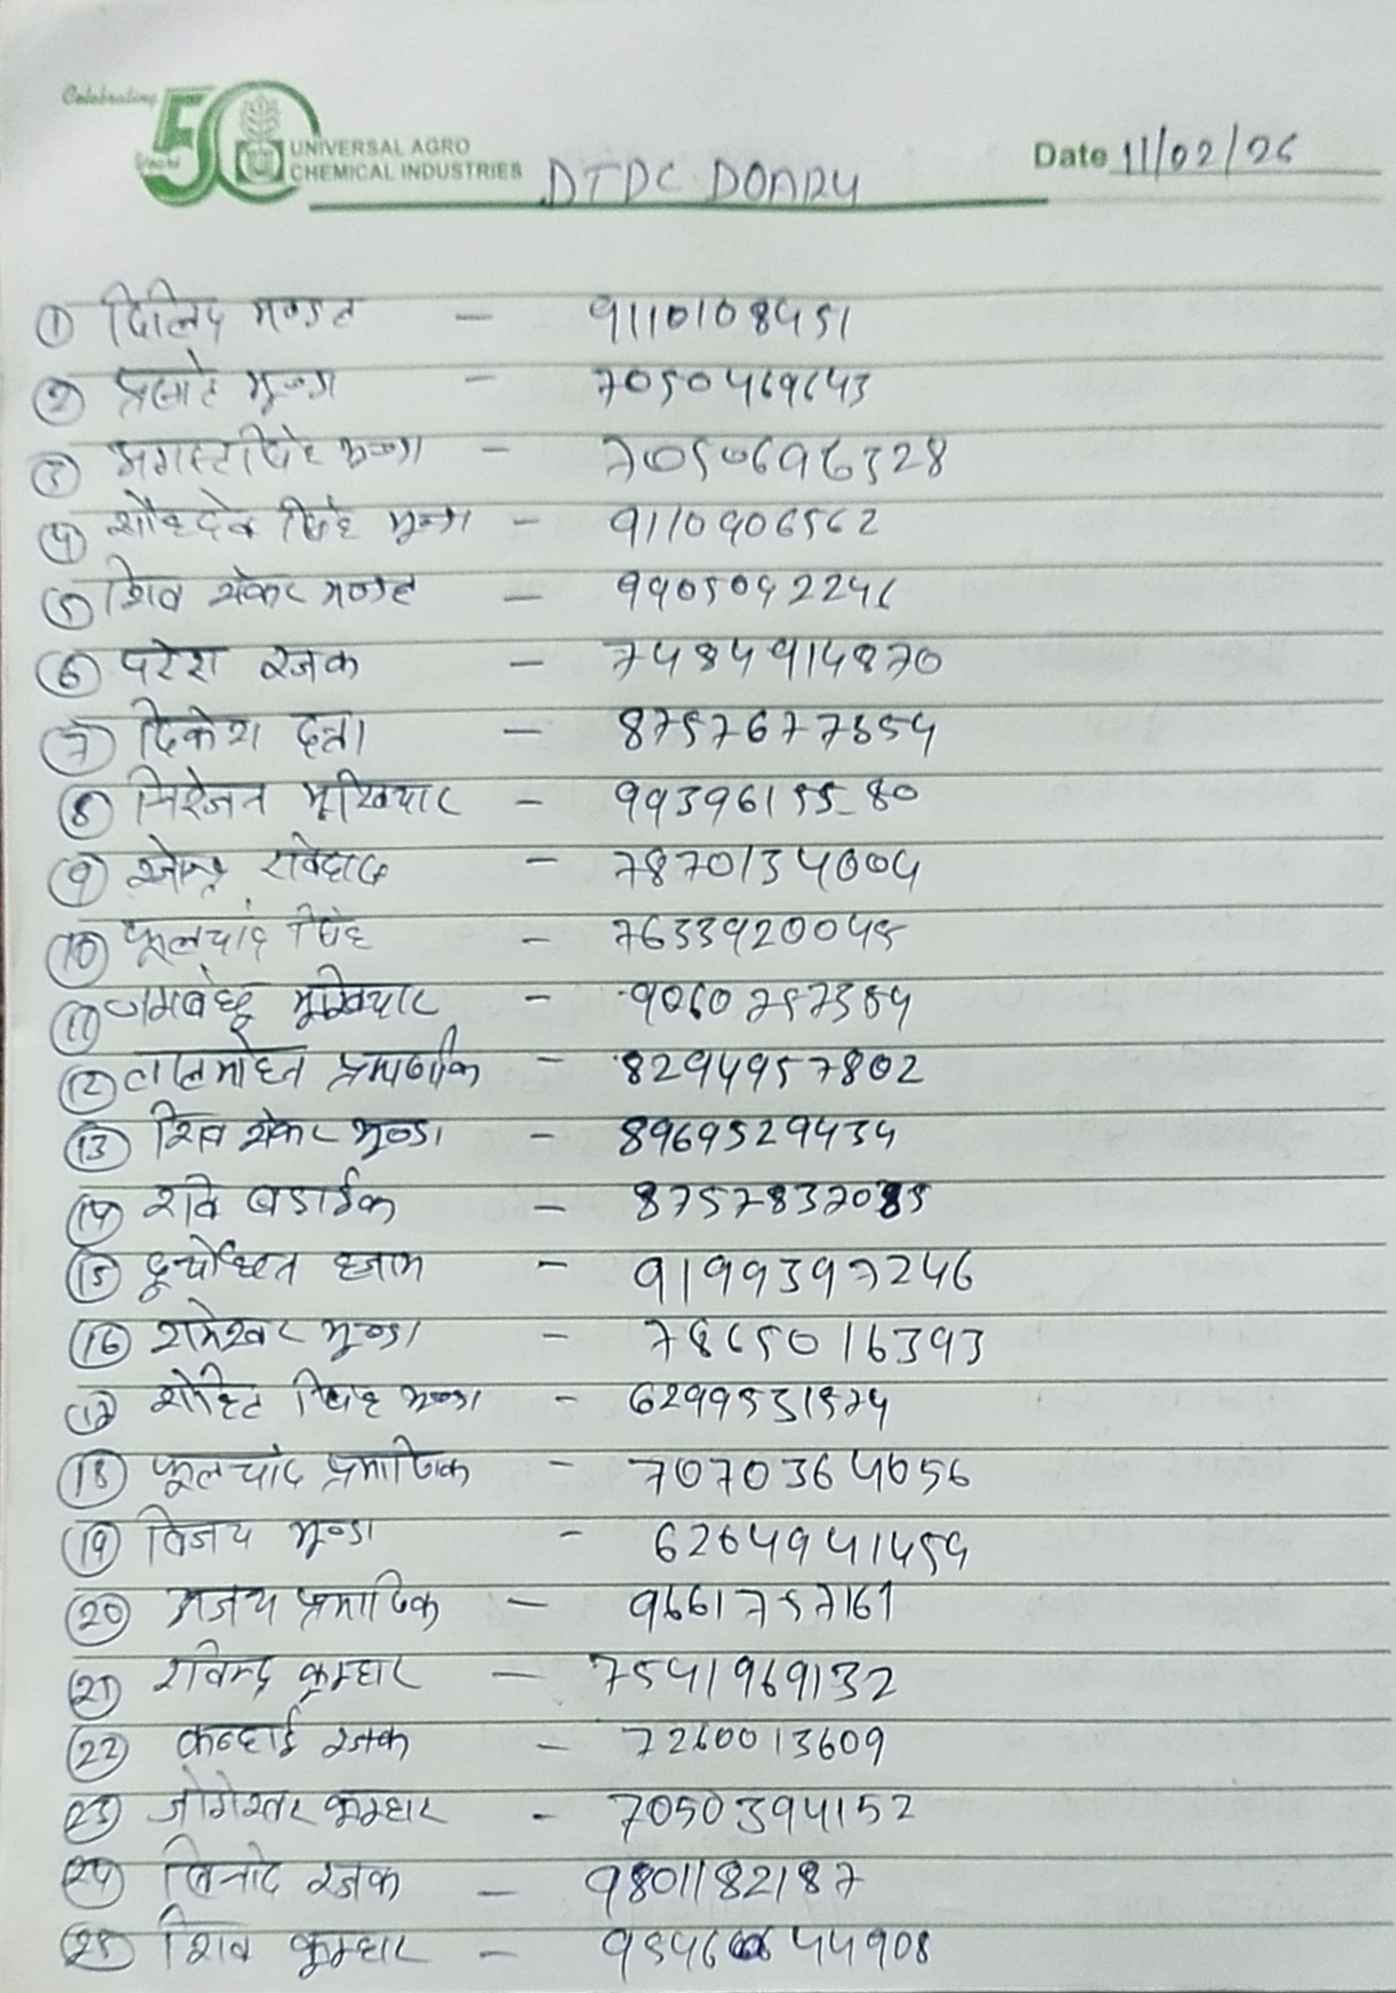 Celebrating
50
UNIVERSAL AGRO
CHEMICAL INDUSTRIES DTDC DOARY
Date 11/02/26
① दिलिप मण्डल - 9110108451
② प्रभात मूण्डा - 7050469643
③ अगस्टसिंह मूण्डा - 7050696328
④ शौहदेव सिंह मूण्डा - 9110906562
⑤ शिव शंकर मण्डल - 9905042246
⑥ परेश रजक - 7484914870
⑦ दिकेश दत्ता - 8757677554
⑧ निरंजन मूखियार - 9939615580
⑨ 7870134004
⑩ फूलचांद सिंह - 7633920045
⑪ जगबंधू मूखियार - 9060757384
⑫ लालमोहन प्रमाणिक - 82949957802
⑬ शिव शंकर मूण्डा - 8969529434
⑭ रवि बडाईक - 8757832085
⑮ दूर्योधन हजाम - 9199397246
⑯ रामेश्वर मूण्डा - 7865016393
⑰ रोहित सिंह मूण्डा - 6299531574
⑱ फूलचांद प्रमाणिक - 7070364056
⑲ विजय मूण्डा - 6264941454
⑳ अजय प्रमाणिक - 9661757161
㉑ रविन्द्र कूम्हार - 7541969132
㉒ कन्हाई रजक - 7260013609
㉓ जोगेश्वर कूम्हार - 7050394152
㉔ विनोद रजक - 9801182187
㉕ शिव कूम्हार - 44908